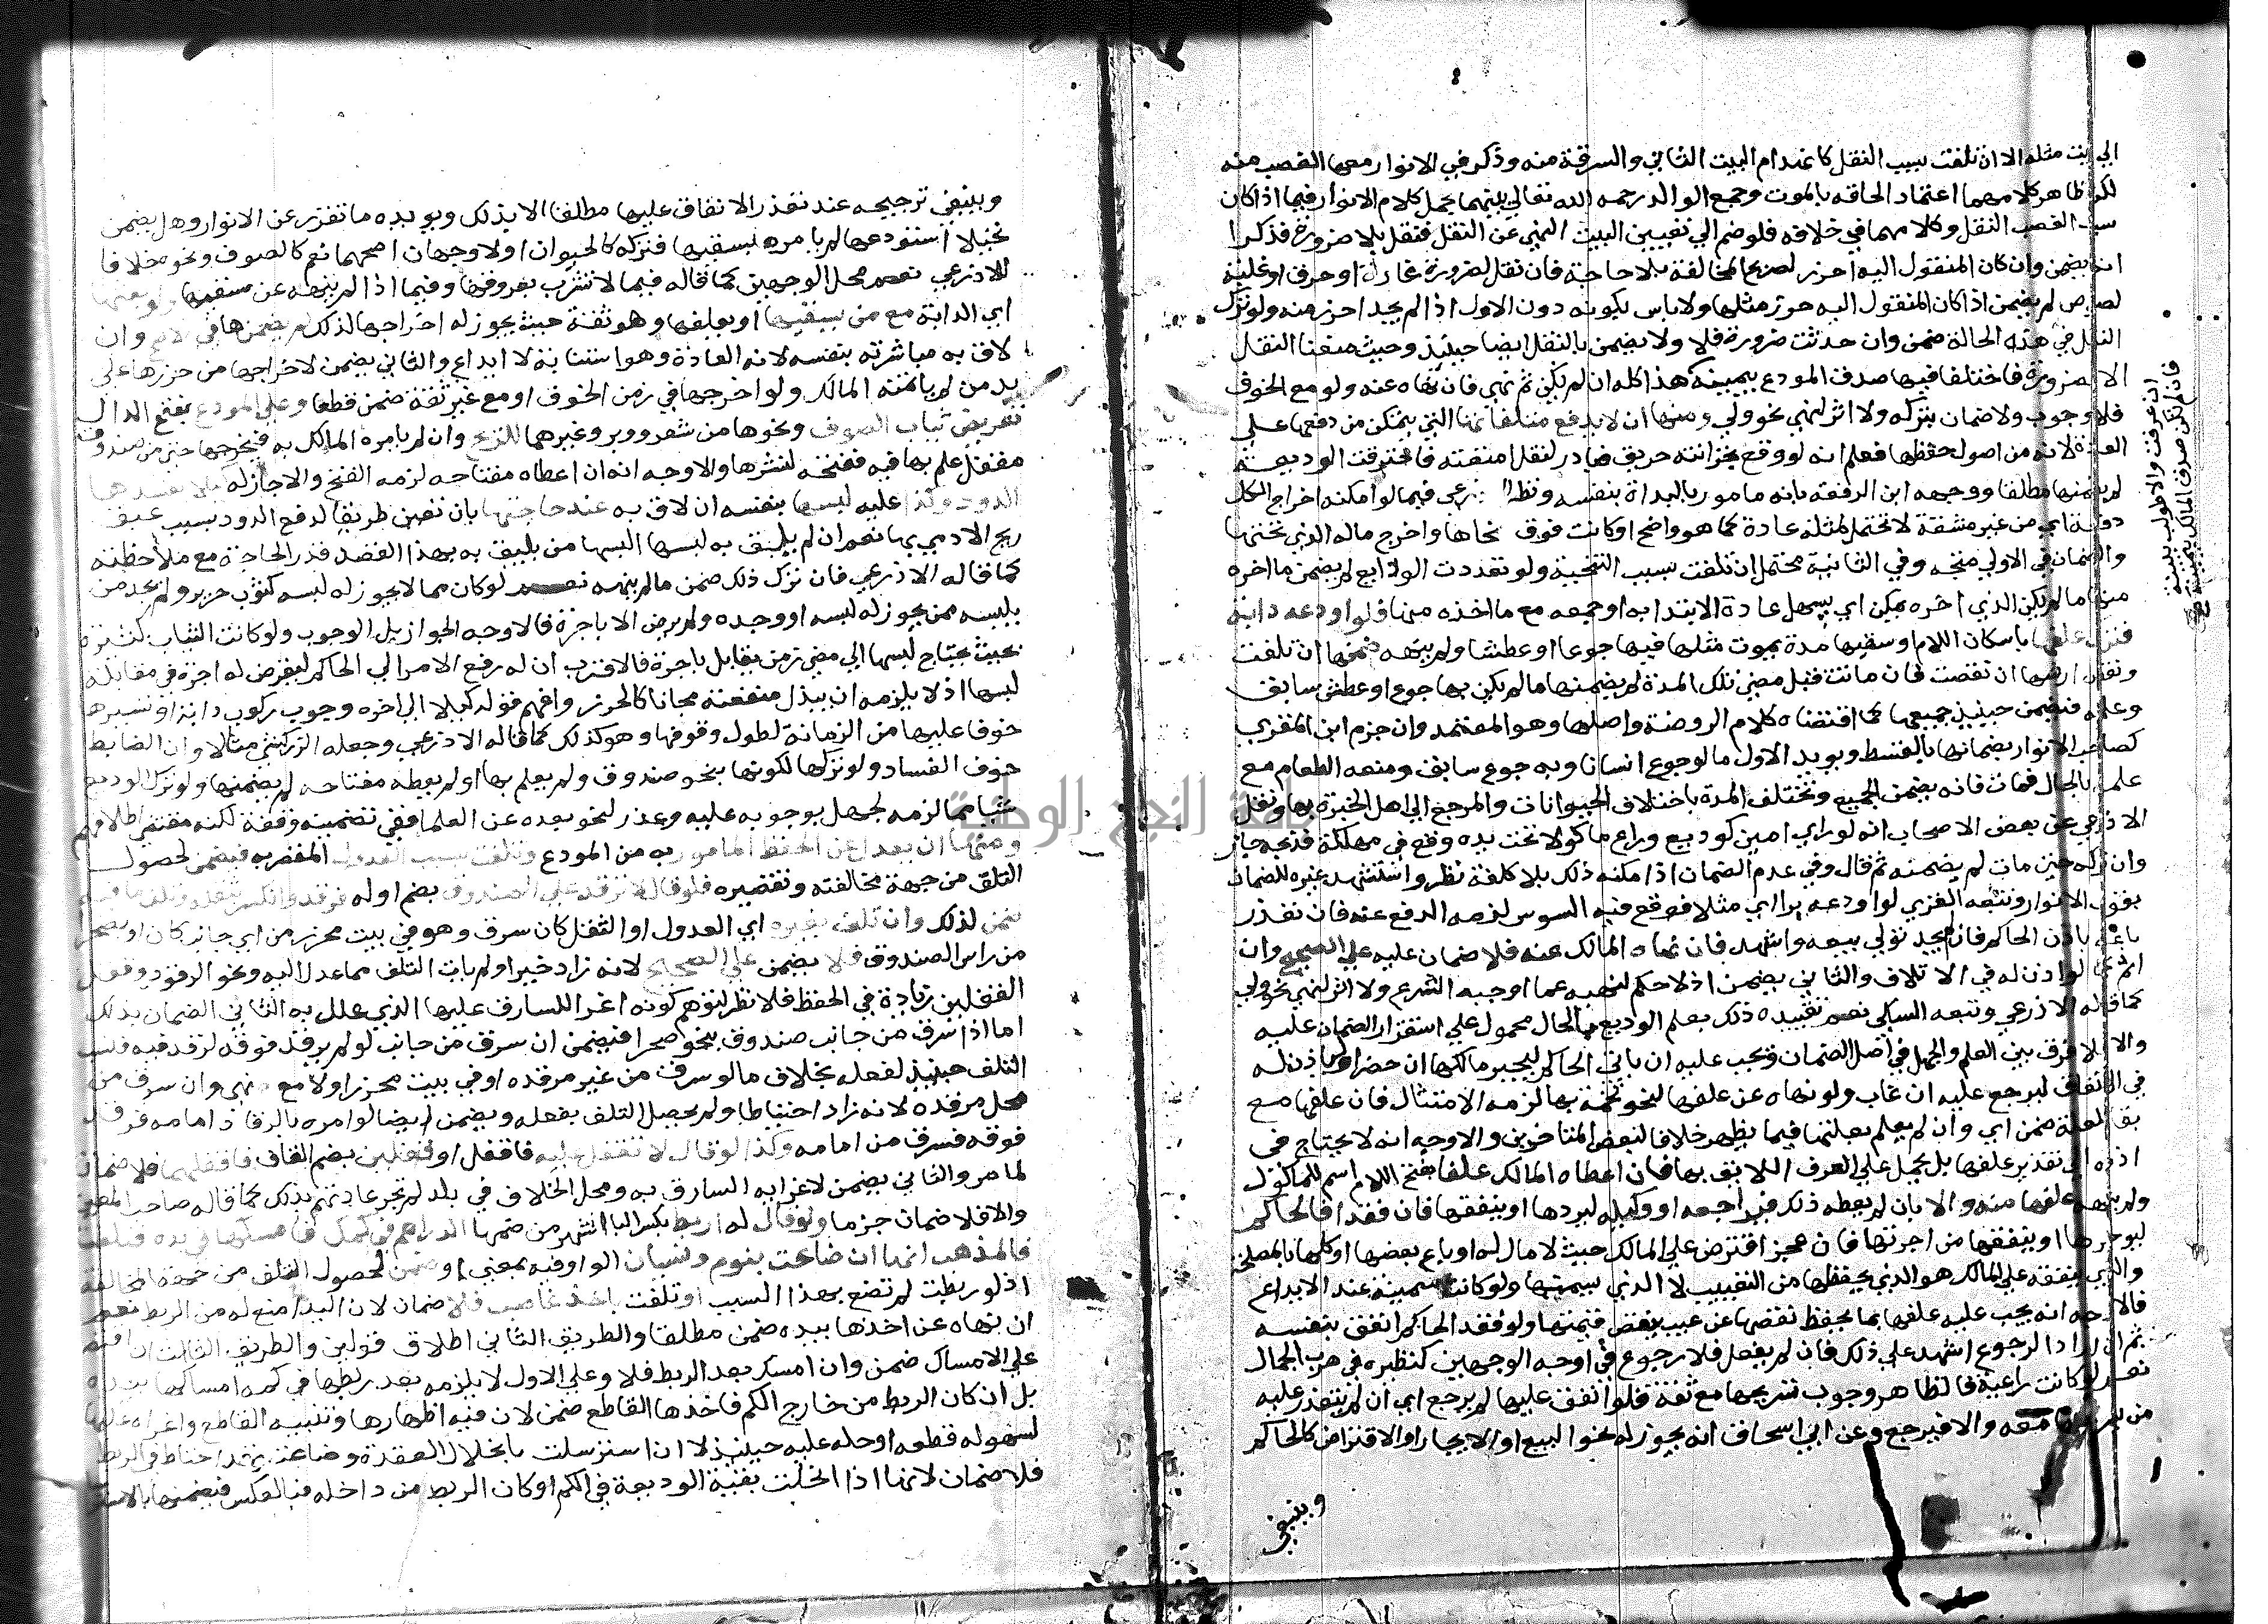 الي بيت مثله الا ان تلفت بسبب النقل كانهدام البيت الثاني والسرقة منه وذكر في الانوار معها الغصب منه
لكن ظاهر كلامهما اعتماد الحاقه بالموت وجمع الوالد رحمه الله تعالي بينهما بحمل كلام الانوار فيما اذا كان
سبب الغصب النقل وكلامهما في خلافه فلو ضم الي تعيين البيت النهي عن النقل فنقل بلا ضرورة فذكرا
انه يضمن وان كان المنقول اليه احرز لصريح المخالفة بلا حاجة فان نقل لضرورة غارة او حرق او غلبة
لصوص لم يضمن اذا كان المنقول اليه حرز مثلها ولا باس بكونه دون الاول اذا لم يجد احرز منه ولو ترك
النقل في هذه الحالة ضمن وان حدثت ضرورة فلا ولا يضمن بالنقل ايضا حينئذ وحيث منعنا النقل
الا لضرورة فاختلفا فيها صدق المودع بيمينه هذا كله ان لم يكن ثم نهي فان نهاه عنه ولو مع الخوف
فلا وجوب ولا ضمان بتركه ولا اثر لنهي نحو ولي ومنها ان لا يدفع متلفاتها التي يتمكن من دفعها علي
العادة لانه من اصول حفظها فعلم انه لو وقع بخزانته حريق فبادر لنقل امتعته فاحترقت الوديعة
لم يضمنها مطلقا ووجهه ابن الرفعة بانه مامور بالبداة بنفسه ونظر الاذرعي فيما لو امكنه اخراج الكل
دفعة اي من غير مشقة لا تحتمل لمثله عادة كما هو واضح او كانت فوق فنحاها واخرج ماله الذي تحتها
والضمان في الاولي متجه وفي الثانية محتمل ان تلفت بسبب التنحية ولو تعددت الودايع لم يضمن ما اخره
منها ما لم يكن الذي اخره يمكن اي يسهل عادة الابتدا به او جمعه مع ما اخذه منها فلو اودعه دابة
فترك علفها باسكان اللام او سقيها مدة يموت مثلها فيها جوعا او عطشا ولم ينهه ضمنها ان تلفت
ونقص ارشها ان نقصت فان ماتت قبل مضي تلك المدة لم يضمنها ما لم يكن بها جوع او عطش سابق
وعلمه فيضمن حينئذ جميعها كما اقتضاه كلام الروضة واصلها وهو المعتمد وان جزم ابن المقري
كصاحب الانوار بضمانها بالقسط ويويد الاول ما لو جوع انسانا وبه جوع سابق ومنعه الطعام مع
علمه بالحال فمات فانه يضمن الجميع وتختلف المدة باختلاف الحيوانات والمرجع الي اهل الخبرة بها ونقل
الاذرعي عن بعض الاصحاب انه لو راي امين كوديع وراع ماكولا تحت يده وقع في مهلكة فذبحه جاز
وان تركه حتي مات لم يضمنه ثم قال وفي عدم الضمان اذا امكنه ذلك بلا كلفة نظر واستشهد غيره للضمان
بقول الانوار وتبعه الغزي لو اودعه برا اي مثلا فوقع فيه السوس لزمه الدفع عنه فان تعذر
باعه باذن الحاكم فان لم يجد تولي بيعه واشهد فان نهاه المالك عنه فلا ضمان عليه علي الصحيح وان
اثم كما لو اذن له في الاتلاف والثاني يضمن اذ لا حكم لنهيه عما اوجبه الشرع ولا اثر لنهي نحو ولي
كما قاله الاذرعي وتبعه السبكي نعم تقييده ذلك بعلم الوديع بالحال محمول علي استقرار الضمان عليه
والا فلا فرق بين العلم والجهل في اصل الضمان ويجب عليه ان ياتي الحاكم ليجبر مالكها ان حضر او ياذن له
في الانفاق ليرجع عليه ان غاب ولو نهاه عن علفها لنحو تخمة بها لزمه الامتثال فان علفها مع
بقا العلة ضمن اي وان لم يعلم بعلتها فيما يظهر خلافا لبعض المتاخرين والاوجه انه لا يحتاج في
اذنه الي تقدير علفها بل يحمل علي العرف اللايق بها فان اعطاه المالك علفا بفتح اللام اسم للماكول
ولم ينهه علفها منه والا بان لم يعطه ذلك فيراجعه او وكيله ليردها او ينفقها فان فقدا فالحاكم
ليوجرها او ينفقها من اجرتها فان عجز اقترض علي المالك حيث لا مال له او باع بعضها او كلها بالمصلحة
والذي ينفقه علي المالك هو الذي يحفظها من التعييب لا الذي يسمنها ولو كانت سمينة عند الايداع
فالاوجه انه يجب عليه علفها بما يحفظ نقصها عن عيب ينقص قيمتها ولو فقد الحاكم انفق بنفسه
ثم ان اراد الرجوع اشهد علي ذلك فان لم يفعل فلا رجوع في اوجه الوجهين كنظيره في هرب الجمال
نعم لو كانت راعية فالظاهر وجوب تسريحها مع ثقة فلو انفق عليها لم يرجع اي ان لم يتعذر عليه
من يسرحها معه والا فيرجع وعن ابي اسحاق انه يجوز له نحوا لبيع او الايجار او الاقتراض كالحاكم
وينبغي
ان عرفت والا طولب ببينة
فان لم تكن صدق المالك بيمينه صح
وينبغي ترجيحه عند تعذر الانفاق عليها مطلقا الا بذلك ويويده ما تقرر عن الانوار وهل يضمن
نخيلا استودعها لم يامره بسقيها فتركه كالحيوان او لا وجهان اصحهما نعم كالصوف ونحوه خلافا
للاذرعي نعم محل الوجهين كما قاله فيما لا تشرب بعروقها وفيما اذا لم ينهه عن سقيها ولو بعثها
اي الدابة مع من يسقيها او يعلفها وهو ثقة حيث يجوز له اخراجها لذلك لم يضمنها في الاصح وان
لاق به مباشرته بنفسه لانه العادة وهو استنابة لا ايداع والثاني يضمن لاخراجها من حرزها علي
يد من لم ياتمنه المالك ولو اخرجها في زمن الخوف او مع غير ثقة ضمن قطعا وعلي المودع بفتح الدال
تعريض ثياب الصوف ونحوها من شعر ووبر وغيرهما للريح وان لم يامره المالك به فيخرجها حتي من صندوق
مقفل علم بها فيه ففتحه لنشرها والاوجه انه ان اعطاه مفتاحه لزمه الفتح والا جاز له كيلا يفسدها
الدود وكذا عليه لبسها بنفسه ان لاق به عند حاجتها بان تعين طريقا لدفع الدود بسبب عبق
ريح الادمي بها نعم ان لم يليق به لبسها البسها من يليق به بهذا القصد قدر الحاجة مع ملاحظته
كما قاله الاذرعي فان ترك ذلك ضمن ما لم ينهه نعم لو كان مما لا يجوز له لبسه كثوب حرير ولم يجد من
يلبسه ممن يجوز له لبسه او وجده ولم يرض الا باجرة فالاوجه الجواز بل الوجوب ولو كانت الثياب كثيرة
بحيث يحتاج لبسها الي مضي زمن يقابل باجرة فالاقرب ان له رفع الامر الي الحاكم ليفرض له اجرة في مقابلة
لبسها اذ لا يلزمه ان يبذل منفعته مجانا كالحرز وافهم قوله كيلا الي اخره وجوب ركوب دابة او تسييرها
خوفا عليها من الزمانة لطول وقوفها وهو كذلك كما قاله الاذرعي وجعله الزركشي مثالا وان الضابط
خوف الفساد ولو تركها لكونها بنحو صندوق ولم يعلم بها او لم يعطه مفتاحه لم يضمنها ولو ترك الوديع
شيا مما لزمه لجهل بوجوبه عليه وعذر لنحو بعده عن العلما ففي تضمينه وقفة لكنه مقتضي اطلاقهم
ومنها ان يعدل عن الحفظ المامور به من المودع وتلفت بسبب العدول المقصر به فيضمن لحصول
التلف من جهة مخالفته وتقصيره فلو قال لا ترقد علي الصندوق بضم اوله فرقد وانكسر بثقله وتلف ما فيه
ضمن لذلك وان تلف بغيره اي العدول او الثقل كان سرق وهو في بيت محرز من اي جانب كان او بصحرا
من راس الصندوق فلا يضمن علي الصحيح لانه زاد خيرا ولم يات التلف مما عدل اليه ونحو الرقود وقفل
القفلين زيادة في الحفظ فلا نظر لتوهم كونه اغرا للسارق عليها الذي علل به الثاني الضمان بذلك
اما اذا سرق من جانب صندوق بنحو صحرا فيضمن ان سرق من جانب لو لم يرقد فوقه لرقد فيه فنسب
التلف حينئذ لفعله بخلاف ما لو سرق من غير مرقده او في بيت محرز او لا مع نهي وان سرق من
محل مرقده لانه زاد احتياطا ولم يحصل التلف بفعله ويضمن ايضا لو امره بالرقاد امامه فرقد
فوقه فسرق من امامه وكذا لو قال لا تقفل عليه فاقفل او قفلين بضم القاف فاقفلهما فلا ضمان
لما مر والثاني يضمن لاغرابه السارق به ومحل الخلاف في بلد لم تجر عادتهم بذلك كما قاله صاحب المعين
والا فلا ضمان جزما ولو قال له اربط بكسر البا اشهر من ضمها الدراهم في كمك فامسكها في يده فتلفت
فالمذهب انها ان ضاعت بنوم ونسيان الواو فيه بمعني او ضمن لحصول التلف من جهة المخالفة
اذ لو ربطت لم تضع بهذا السبب او تلفت باخذ غاصب فلا ضمان لان اليد امنع له من الربط نعم
ان نهاه عن اخذها بيده ضمن مطلقا والطريق الثاني اطلاق قولين والطريق الثالث ان اقتصر
علي الامساك ضمن وان امسك بعد الربط فلا وعلي الاول لا يلزمه بعد ربطها في كمه امساكها بيده
بل ان كان الربط من خارج الكم فاخذها القاطع ضمن لان فيه اظهارها وتنبيه القاطع واغراه عليها
لسهولة قطعه او حله عليه حينئذ لا ان استرسلت بانحلال العقدة وضاعت وقد احتاط في الربط
فلا ضمان لانها اذا انحلت بقيت الوديعة في الكم او كان الربط من داخله فبالعكس فيضمنها بالاسترسال